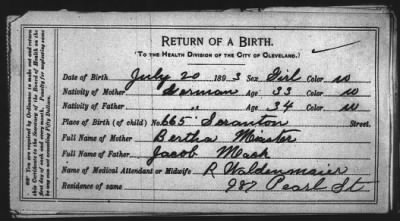 RETURN OF A BIRTH.
(TO THE HEALTH DIVISION OF THE CITY OF CLEVELAND.)
Date of Birth July 20 1893 Sex Girl Color W
Nativity of Mother German Age 33 Color W
Nativity of Father " Age 34 Color W
Place of Birth (of child) No. 665 Scranton Street.
Full Name of Mother Bertha Minster
Full Name of Father Jacob Mack
Name of Medical Attendant or Midwife R Waldenmaier
Residence of same 987 Pearl St
You are required by Ordinance to make out and return this Certificate to the Secretary of the Board of Health on the first day of each month. Penalty for neglecting same is any sum not exceeding Fifty Dollars.